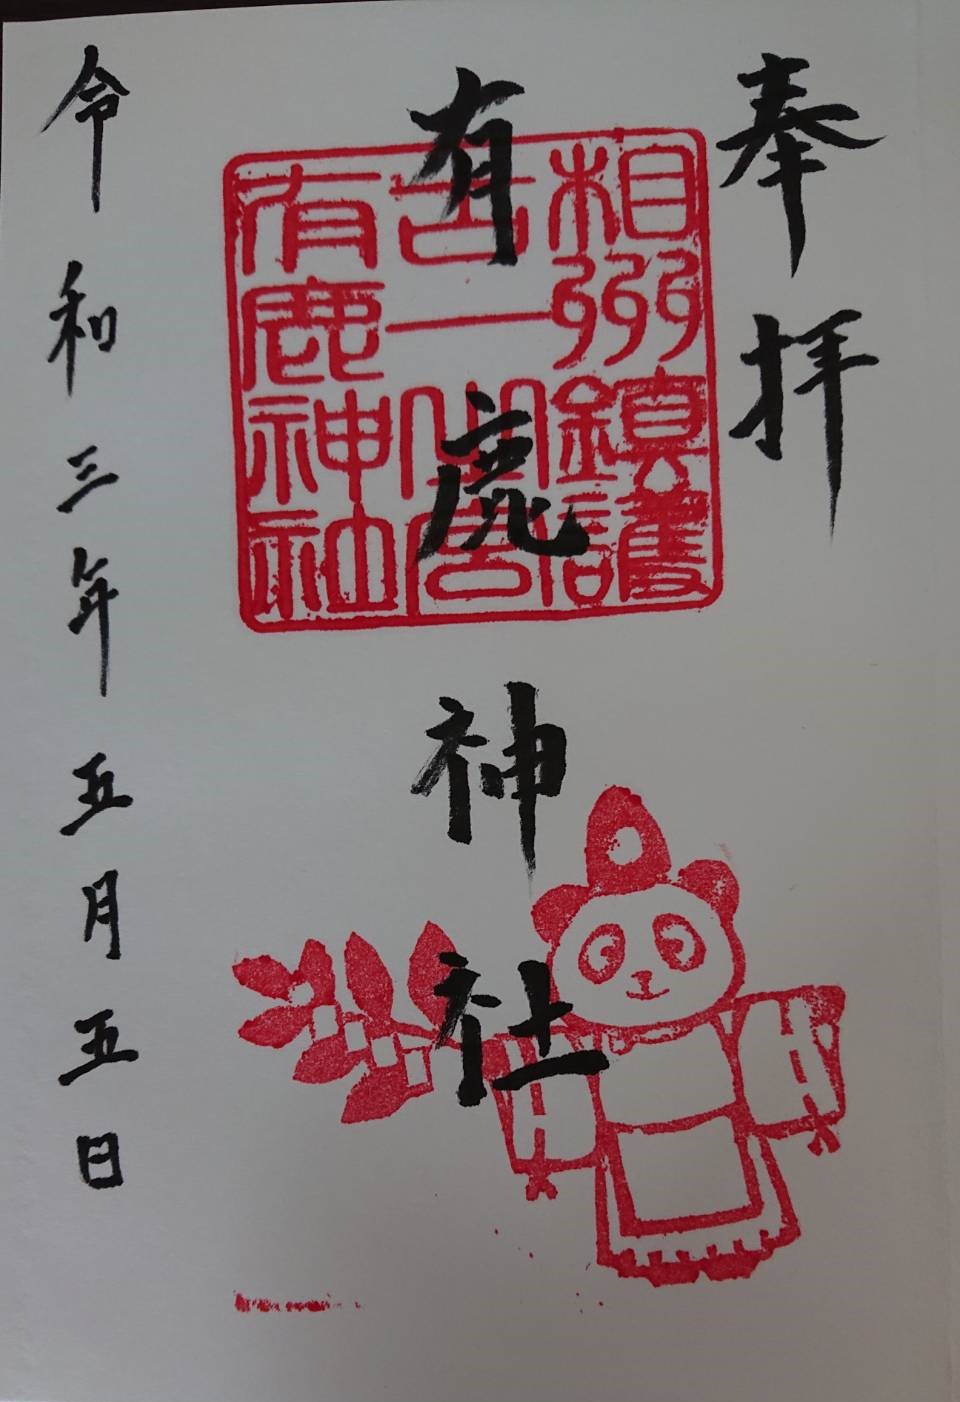 奉拝
有鹿神社
相州鎮護
一宮
有鹿神社
令和三年五月五日